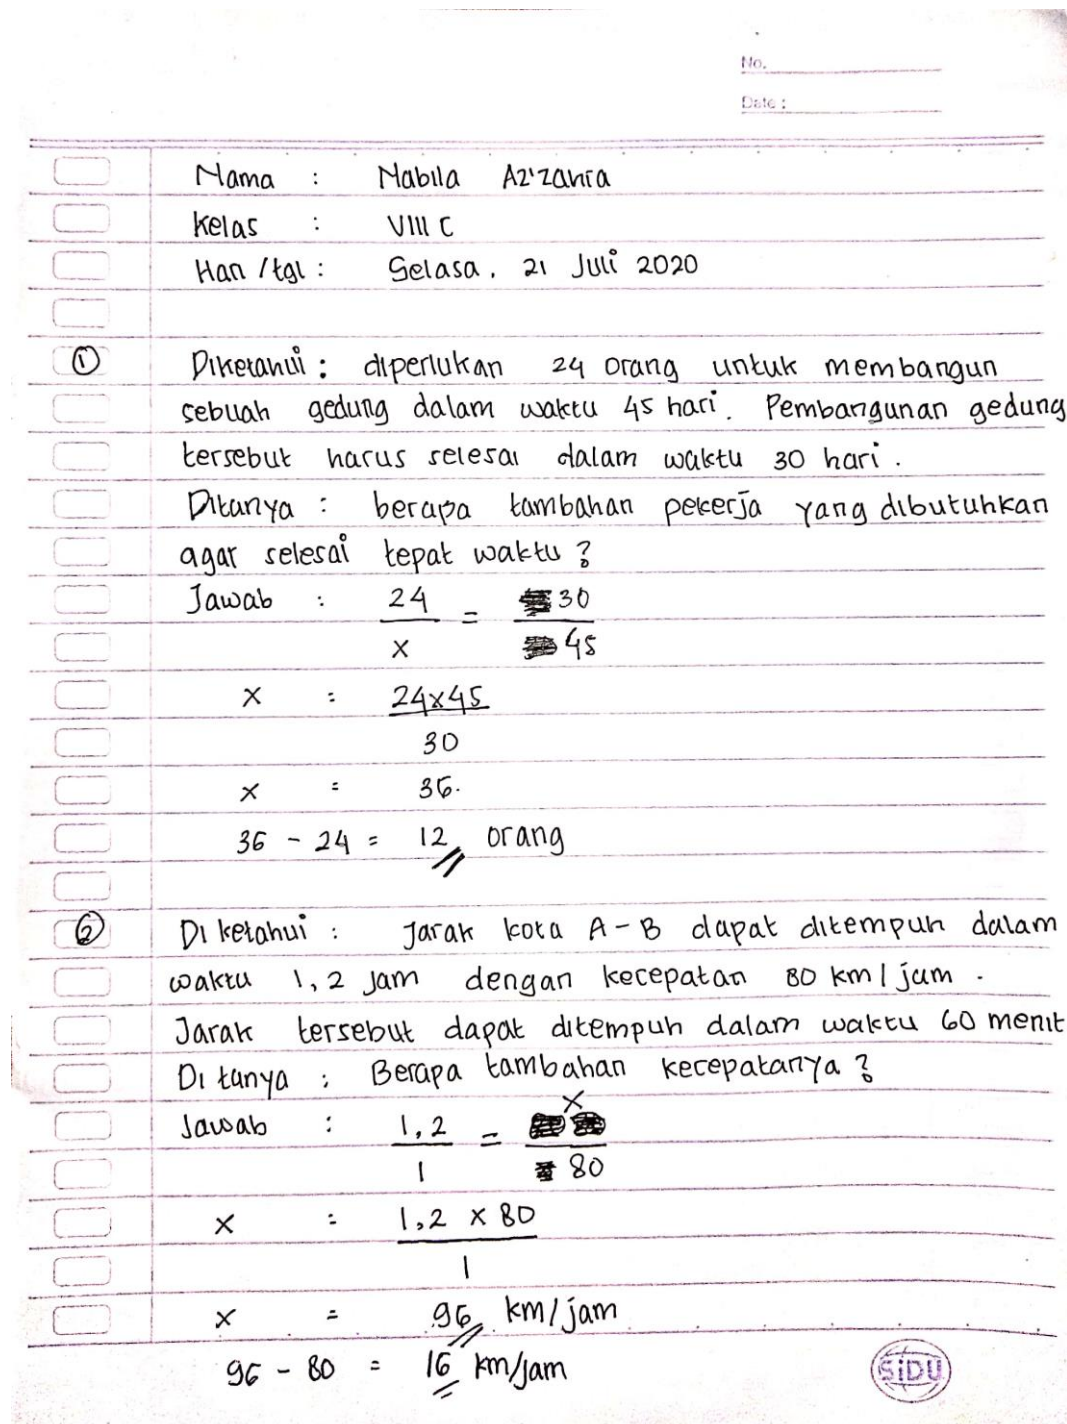 No.
Date :
Nama : Nabila Az'zahra
Kelas : VIII C
Hari / tgl : Selasa, 21 Juli 2020
① Diketahui : diperlukan 24 orang untuk membangun
sebuah gedung dalam waktu 45 hari. Pembangunan gedung
tersebut harus selesai dalam waktu 30 hari.
Ditanya : berapa tambahan pekerja yang dibutuhkan
agar selesai tepat waktu ?
Jawab : 24 = 30
x 45
x : 24x45
30
x = 36.
36 - 24 = 12 orang
② Di ketahui : Jarak kota A - B dapat ditempuh dalam
waktu 1,2 jam dengan kecepatan 80 km / jam .
Jarak tersebut dapat ditempuh dalam waktu 60 menit
Di tanya : Berapa tambahan kecepatanya ?
Jawab : 1,2 = x
1 80
x : 1,2 x 80
1
x = 96 km/jam
96 - 80 = 16 km/jam
SiDU